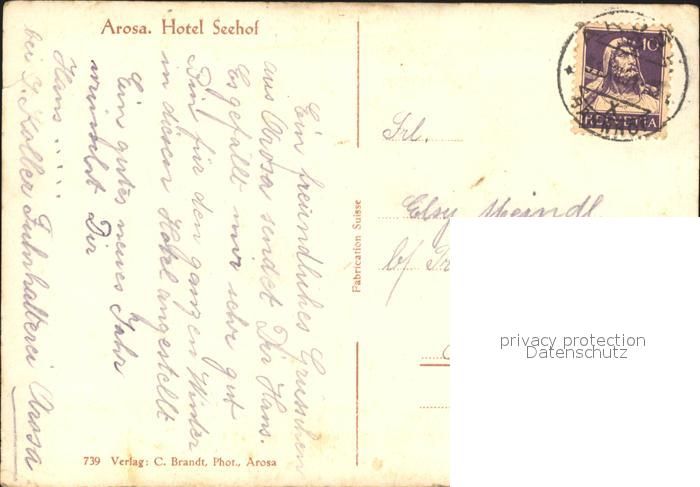 Arosa. Hotel Seehof
Ein freundliches Grüsschen
aus Arosa sendet Dir Hans.
Es gefällt mir sehr gut
Bin für den ganzen Winter
in diesen Hotel angestellt
Ein gutes neues Jahr
wünscht Dir
Hans.....
bei J. Koller Fuhrhalterei Arosa
739 Verlag: C. Brandt, Phot., Arosa
Fabrication Suisse
10
HELVETIA
Frl.
Elsy Meindl
b/
privacy protection
Datenschutz